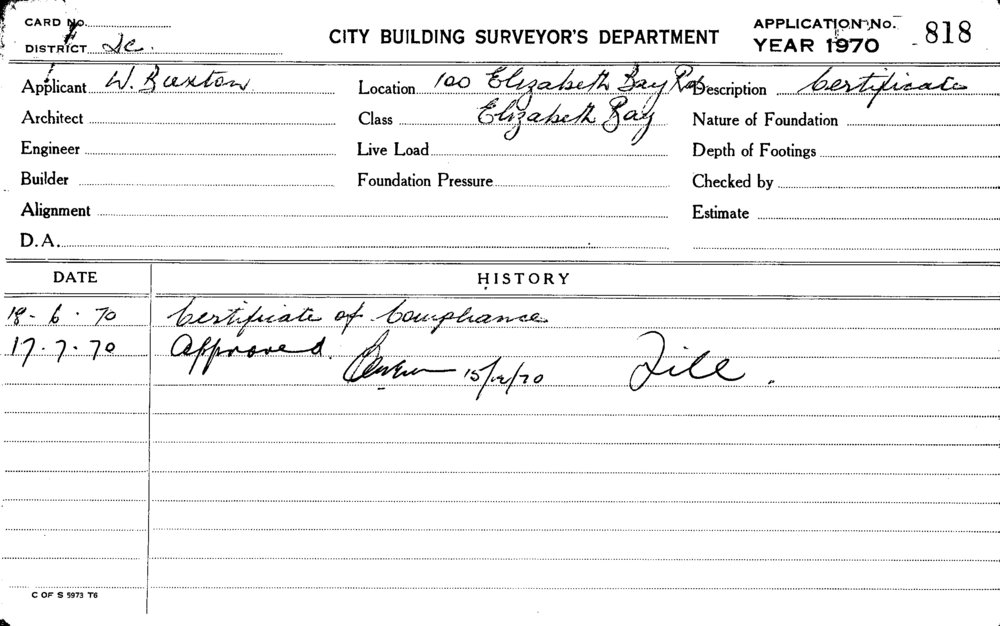 CARD No.
DISTRICT 2c.
CITY BUILDING SURVEYOR'S DEPARTMENT
APPLICATION No.
YEAR 1970
818
Applicant W. Buxton
Location 100 Elizabeth Bay Rd
Description Certificate
Architect
Class Elizabeth Bay
Nature of Foundation
Engineer
Live Load
Depth of Footings
Builder
Foundation Pressure
Checked by
Alignment
Estimate
D.A.
DATE HISTORY
18-6-70 Certificate of Compliance
17.7.70 Approved.
15/12/70 File.
C OF S 5973 T6